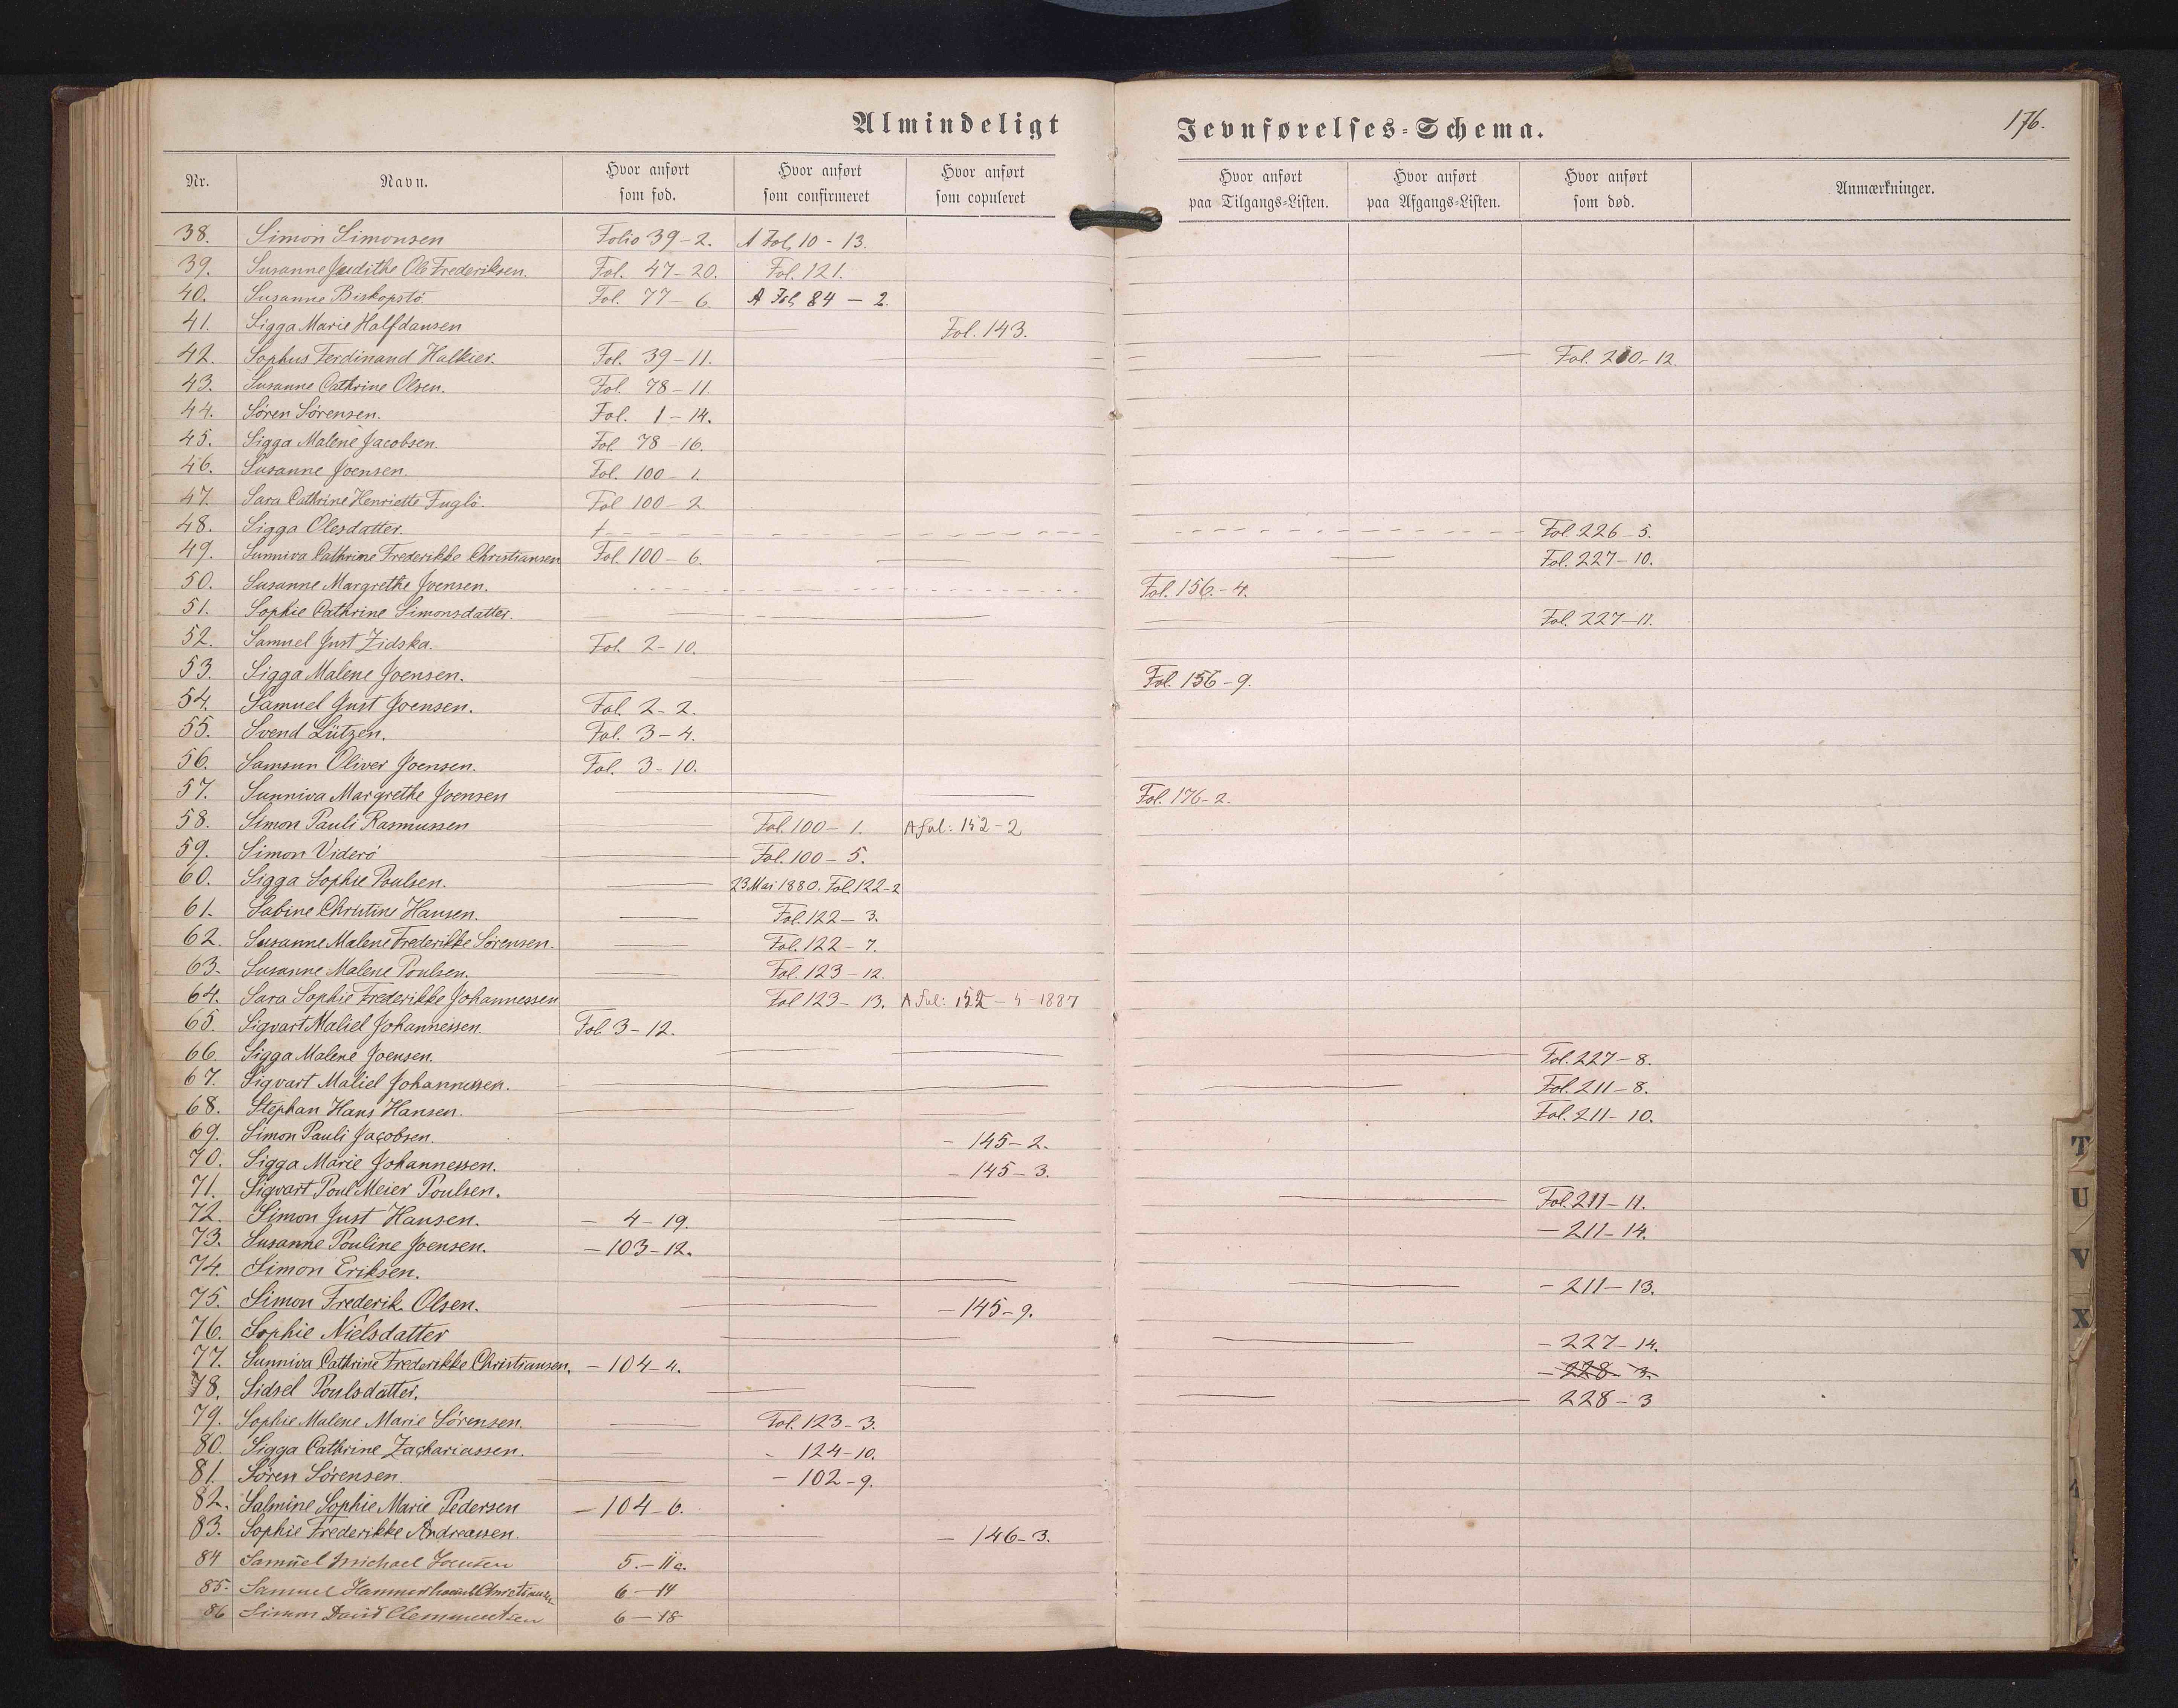 Almindeligt Jevnførelses-Schema. 176.
Nr. Navn. Hvor anført som fød. Hvor anført som confirmeret Hvor anført som copuleret Hvor anført paa Tilgangs-Listen. Hvor anført paa Afgangs-Listen. Hvor anført som død. Anmærkninger.
38. Simon Simonsen Folio 39-2. A Fol. 10 - 13.
39. Susanne Judithe Ole Frederiksen. Fol. 47-20. Fol. 121.
40. Susanne Biskopstö Fol. 77-6. A Fol. 84 - 2.
41. Sigga Marie Halfdansen Fol. 143.
42. Sophus Ferdinand Halkier. Fol. 39-11. Fol. 210-12.
43. Susanne Cathrine Olsen. Fol. 78-11.
44. Sören Sörensen. Fol. 1-14.
45. Sigga Malene Jacobsen. Fol. 78-16.
46. Susanne Joensen. Fol. 100-1.
47. Sara Cathrine Henriette Fuglö. Fol 100-2.
48. Sigga Olesdatter. Fol. 226-5.
49. Sunniva Cathrine Frederikke Christiansen Fol. 100-6. Fol. 227-10.
50. Susanne Margrethe Joensen. Fol. 156-4.
51. Sophie Cathrine Simonsdatter. Fol. 227-11.
52. Samuel Just Zidska. Fol. 2-10.
53. Sigga Malene Joensen. Fol. 156-9.
54. Samuel Just Joensen. Fol. 2-2.
55. Svend Lützen. Fol. 3-4.
56. Samsun Oliver Joensen. Fol. 3-10.
57. Sunniva Margrethe Joensen Fol. 176-2.
58. Simon Pauli Rasmussen Fol. 100-1. A Fol: 152-2
59. Simon Viderö Fol. 100-5.
60. Sigga Sophie Poulsen. 23 Mai 1880. Fol. 122-2
61. Sabine Christine Hansen. Fol. 122-3.
62. Susanne Malene Frederikke Sörensen. Fol. 122-7.
63. Susanne Malene Poulsen. Fol. 123-12.
64. Sara Sophie Frederikke Johannessen Fol 123-13. A Fol: 152-5-1887
65. Sigvart Maliel Johannessen. Fol 3-12.
66. Sigga Malene Joensen. Fol. 227-8.
67. Sigvart Maliel Johannessen. Fol. 211-8.
68. Stephan Hans Hansen. Fol. 211-10.
69. Simon Pauli Jacobsen. - 145-2.
70. Sigga Marie Johannessen. - 145-3.
71. Sigvart Poul Meier Poulsen. Fol. 211-11.
72. Simon Just Hansen. - 4-19. - 211-14.
73. Susanne Pouline Joensen. - 103-12.
74. Simon Eriksen. - 211-13.
75. Simon Frederik Olsen. - 145-9.
76. Sophie Nielsdatter - 227-14.
77. Sunniva Cathrine Frederikke Christiansen. - 104-4. - 228-3.
78. Sidsel Poulsdatter. 228-3
79. Sophie Malene Marie Sörensen. Fol. 123-3.
80. Sigga Cathrine Zachariassen. - 124-10.
81. Sören Sörensen - 102-9.
82. Salmine Sophie Marie Pedersen - 104-6.
83. Sophie Frederikke Andreassen. - 146-3.
84 Samuel Michael Joensen 5.-11a.
85. Samuel Christiansen 6-14
86 Simon David Clemmentsen 6-18
T
U
V
X